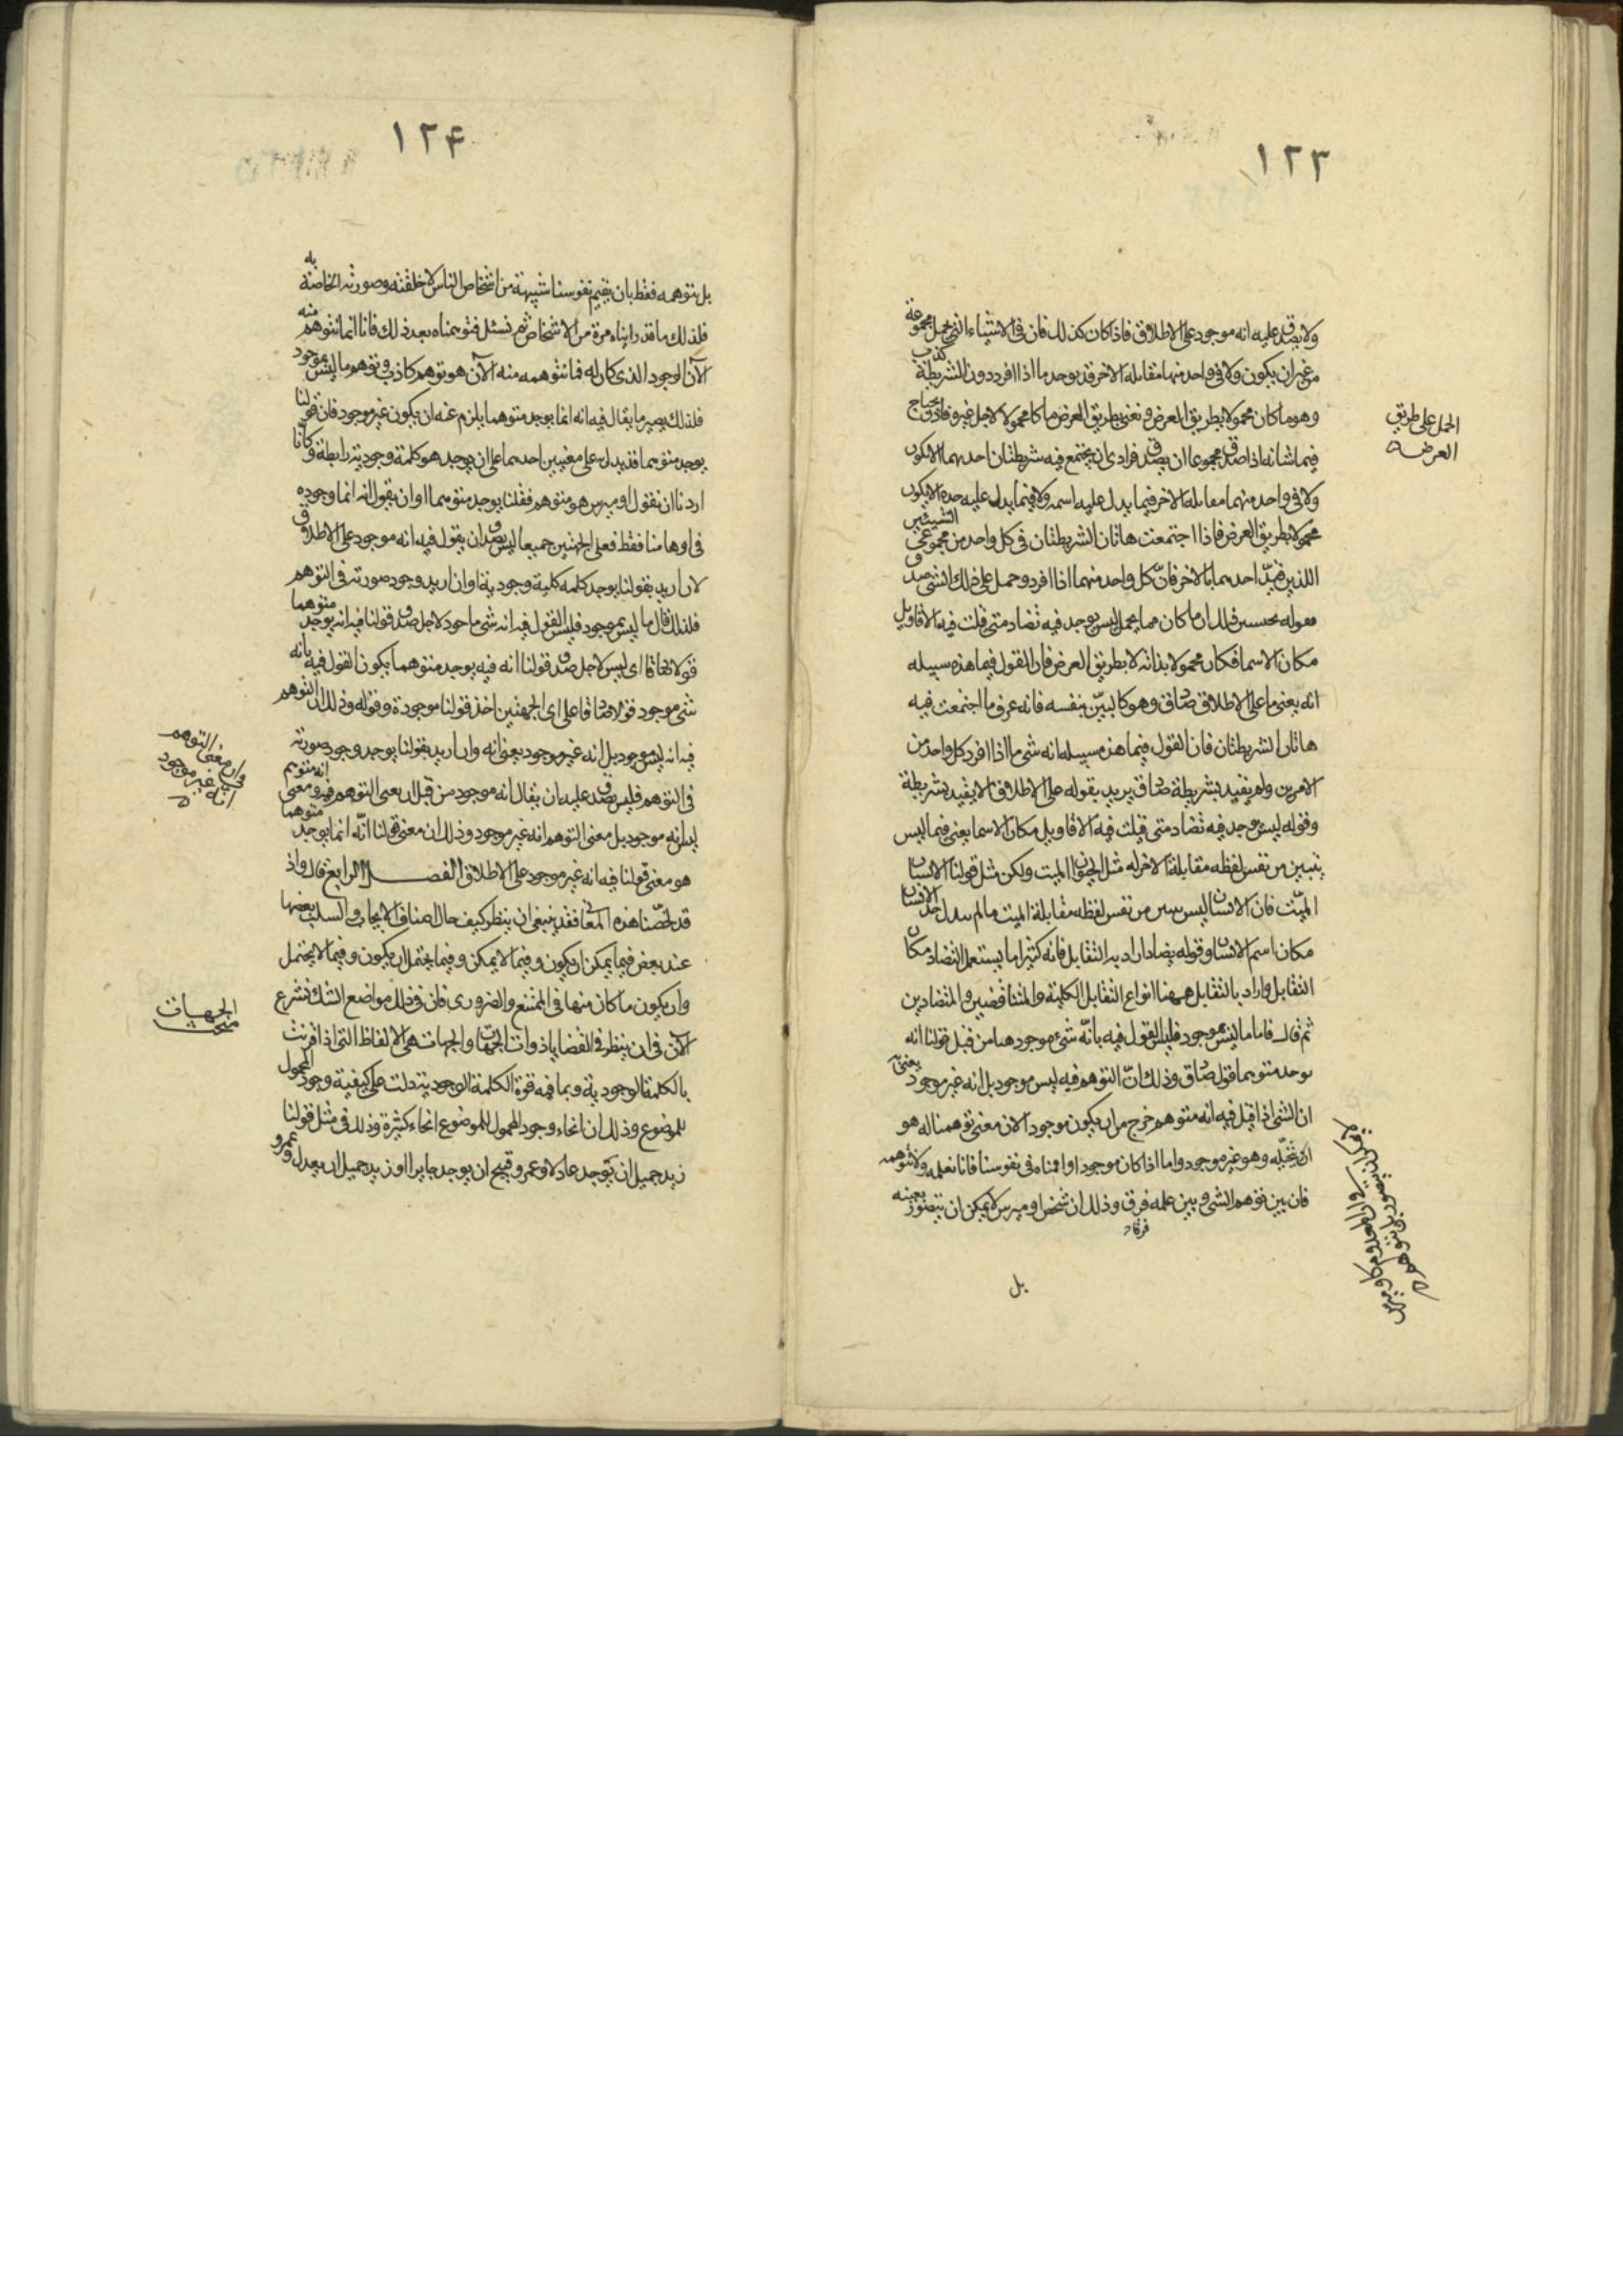 ١٢٣
ولا يصدق عليه انه موجود على الاطلاق فاذا كان كذلك فان في الاشياء التي تحمل مجموعة
من غير ان يكون ولا في واحد منها مقابلة الاخر قد يوجد ما اذا افرد دون الشريطة كذب
وهو ما كان محمولا بطريق العرض ونعني بطريق العرض ما كا محمولا لاجل غيره فاذن يحتاج
فيما شانه اذا صدق مجموعا ان يصدق فرادى ان يجتمع فيه شريطتان احدهما الا يكون
ولا في واحد منهما مقابلة الاخر فيما يدل عليه اسمه ولا فيما يدل عليه حده الا يكون
محمولا بطريق العرض فاذا اجتمعت هاتان الشريطتان في كل واحد من مجموعي الشيئين
اللذين قيد احدهما بالاخر فان كل واحد منهما اذا افرد وحمل على ذلك الشي صدق
ما كان مما يحمل ليس يوجد فيه تضاد متى قلت فيه الاقاويل
مكان الاسما فكان محمولا بذاته لا بطريق العرض فان القول فيما هذه سبيله
انه يعني ما على الاطلاق صادق وهو كالبين بنفسه فانه عرف ما اجتمعت فيه
هاتان الشريطتان فان القول فيما هذه سبيله انه شي ما اذا افرد كل واحد من
الامرين ولم يقيد بشريطة صادق يريد بقوله على الاطلاق الا يقيد بشريطة
وقوله ليس يوجد فيه تضاد متى قيلت فيه الاقاويل مكان الاسما يعني فيما ليس
يتبين من نفس لفظه مقابلة الاخر له مثل الحيوان الميت ولكن مثل قولنا الانسان
الميت فان الانسان ليس من نفس لفظه مقابلة الميت ما لم حد الانسان
مكان اسم الانسان وقوله يضاد اراد به التقابل فانه كثيرا ما يستعمل التضاد مكان
التقابل واراد بالتقابل ههنا انواع التقابل الكلية والمتناقضين والمتضادين
ثم قال فاما ما ليس بموجود فليس القول فيه بانه شيء موجود من قبل قولنا انه
يوجد متوهما قول صادق وذلك ان التوهم فيه ليس موجود بل انه غير موجود يعني
ان الشي اذا قيل فيه انه متوهم خرج من ان يكون موجود الان معنى توهمنا له هو
ان نتخيله وهو غير موجود واما اذا كان موجود اوافمناه في نفوسنا فانا نعلمه ولا نتوهمه
فان بين توهم الشي وبين علمه فرق وذلك ان شخص اوميرس لا يمكن ان نتصور بعينه
فرقا
بل
الحمل على طريق
العرض
١٢۴
بل نتوهمه فقط بان نقيم نفوسنا شبيهة من اشخاص الناس لا خلقته وصورته الخاصة به
فلذلك ما قد رايناه مرة من الاشخاص ثم نسئل فتوهمناه بعد ذلك فانا انما نتوهم منه
الآن الوجود الذي كان له فما نتوهمه منه الآن هو توهم كاذب وتوهم ما ليس بموجود
فلذلك يصير ما يقال فيه انه انما يوجد متوهما يلزم عنه ان يكون غير موجود فان قولنا
يوجد متوهما قد يدل على معنيين احدهما على ان يوجد هو كلمة وجودية رابطة وكانا
اردنا ان نقول اوميرس هو متوهم فقلنا يوجد متوهما او ان يقول انه انما وجوده
في اوهامنا فقط فعلى الجهتين جميعا ليس يصدق ان يقول فيه انه موجود على الاطلاق
لان اريد بقولنا يوجد كلمه كلمة وجودية او ان اريد وجود صورته في التوهم
فلذلك قال ما ليس بموجود فليس القول فيه انه شي ما لاجل صدق قولنا فيه انه يوجد متوهما
قولا اي ليس لاجل صدق قولنا انه فيه يوجد متوهما يكون القول فيه بانه
شي موجود قولا صادقا على اي الجهتين اخذ قولنا موجودة وقوله وذلك ان التوهم
فيه انه ليس موجود بل انه غير موجود يعني انه وان اريد بقولنا يوجد وجود صورته
في التوهم فليس يصدق عليه بان يقال انه موجود من قبل ان معنى التوهم فيه ومعنى انه متوهم
ليس انه موجود بل معنى التوهم انه غير موجود وذلك ان معنى قولنا انه انما يوجد متوهما
هو معنى قولنا فيه انه غير موجود على الاطلاق الفصل الرابع قال واذ
قد لخصنا هذه المعاني فقد ينبغي ان ينظر كيف حال اصناف الايجاب والسلب بعضها
عند بعض فيما يمكن ان يكون وفيما لا يمكن وفيما يحتمل ان يكون وفيما لا يحتمل
وان يكون ما كان منها في الممتنع والضروري فان في ذلك مواضع الشك نشرع
الآن في ان ينظر في القضايا ذوات الجهات والجهات هي الالفاظ التي اذا قرنت
بالكلمة الوجودية وبما فيه قوة الكلمة الوجودية دلت على كيفية وجود المحمول
للموضوع وذلك ان انحاء وجود المحمول للموضوع انحاء كثيرة وذلك في مثل قولنا
زيد جميل ان يوجد عادلا وعمرو قبيح ان يوجد جايرا او زيد جميل ان يعدل وعمرو
وان معنى التوهم
انه غير موجود
الجهات